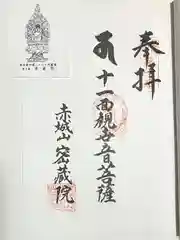 奉拝
十一面観世音菩薩
赤城山密蔵院